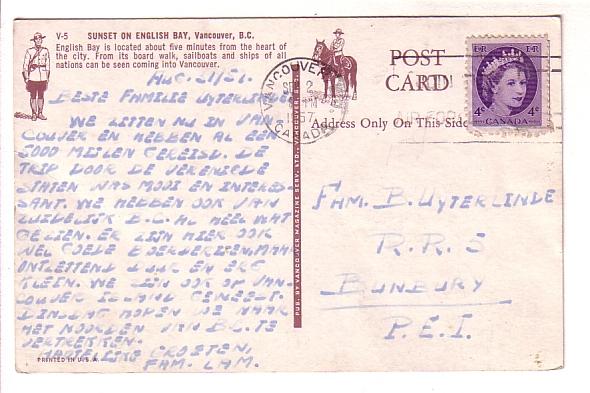 V-5 SUNSET ON ENGLISH BAY, Vancouver, B.C.
English Bay is located about five minutes from the heart of
the city. From its board walk, sailboats and ships of all
nations can be seen coming into Vancouver.
AUG. 31/57.
BESTE FAMILIE UYTERLINDE
WE ZITTEN NU IN VAN-
COUVER EN HEBBEN AL EEN
5000 MIJLEN GEREISD. DE
TRIP DOOR DE VERENIGDE
STATEN WAS MOOI EN INTERES-
SANT. WE HEBBEN OOK VAN
ZUIDELIJK B.C. AL HEEL WAT
GEZIEN. ER ZIJN HIER OOK
WEL GOEDE BOERDERIJEN, MAAR
ONTZETTEND DUUR EN ERG
KLEIN. WE ZIJN OOK OP VAN-
COUVER ISLAND GEWEEST.
DINSDAG HOPEN WE NAAR
HET NOORDEN VAN B.C. TE
VERTREKKEN.
HARTELIJKE GROETEN,
FAM. LAM.
PRINTED IN U.S.A.
PUB. BY VANCOUVER MAGAZINE SERV. LTD., VANCOUVER, B.C.
POST
CARD
Address Only On This Side
VANCOUVER
CANADA
E·R E·R
4c 4c
CANADA
FAM. B. UYTERLINDE
R.R. 5
BUNBURY
P.E.I.